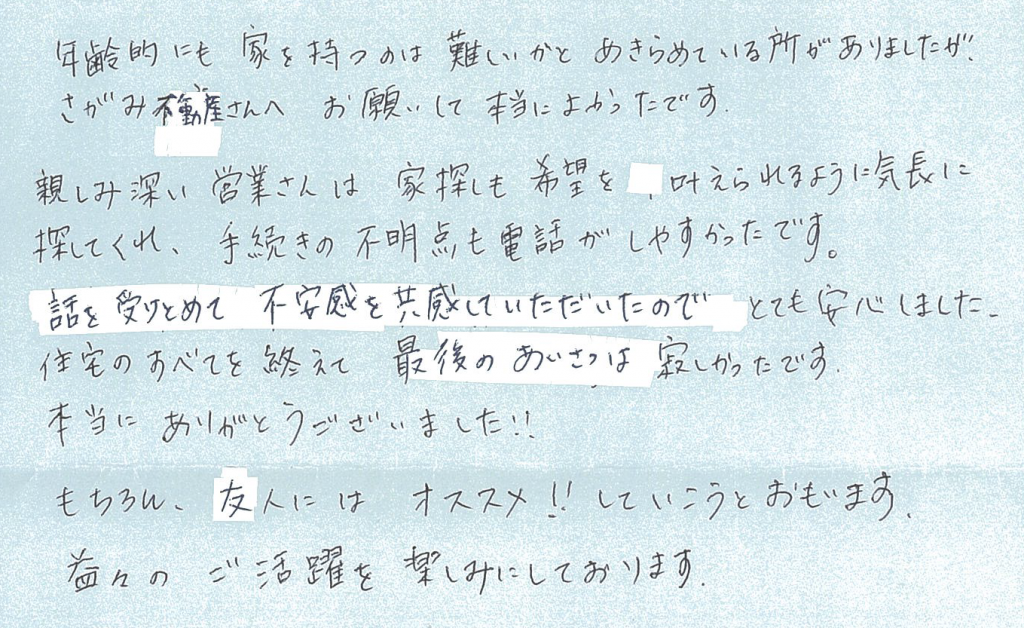 年齢的にも 家を持つのは 難しいかと あきらめている所がありましたが、
さがみ不動産さんへ お願いして 本当によかったです.
親しみ深い 営業さんは 家探しも 希望を 叶えられるように気長に
探してくれ、 手続きの 不明点も 電話が しやすかったです。
話を 受けとめて 不安感を 共感していただいたので とても 安心しました.
住宅の すべてを 終えて 最後の あいさつは 寂しかったです.
本当に ありがとうございました!!
もちろん、 友人には オススメ!! していこうとおもいます.
益々の ご活躍を 楽しみにしております.